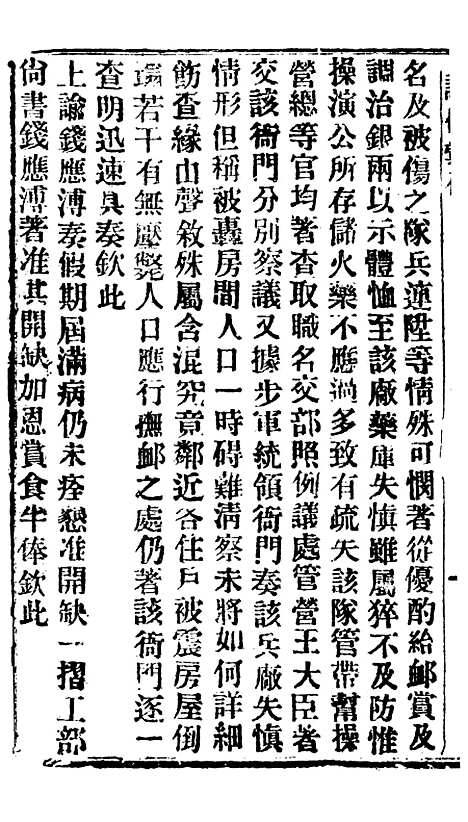 名及被傷之隊兵連陞等情殊可憫著從優酌給卹賞及
調治銀兩以示體恤至該廠藥庫失慎雖屬猝不及防惟
操演公所存儲火藥不應過多致有疏失該隊管帶幫操
營總等官均著查取職名交部照例議處管營王大臣著
交該衙門分別察議又據步軍統領衙門奏該兵廠失慎
情形但稱被轟房間人口一時碍難清察未將如何詳細
飭查緣由聲敘殊屬含混究竟鄰近各住戶被震房屋倒
塌若干有無壓斃人口應行撫卹之處仍著該衙門逐一
查明迅速具奏欽此
上諭錢應溥奏假期屆滿病仍未痊懇准開缺一摺工部
尙書錢應溥著准其開缺加恩賞食半俸欽此